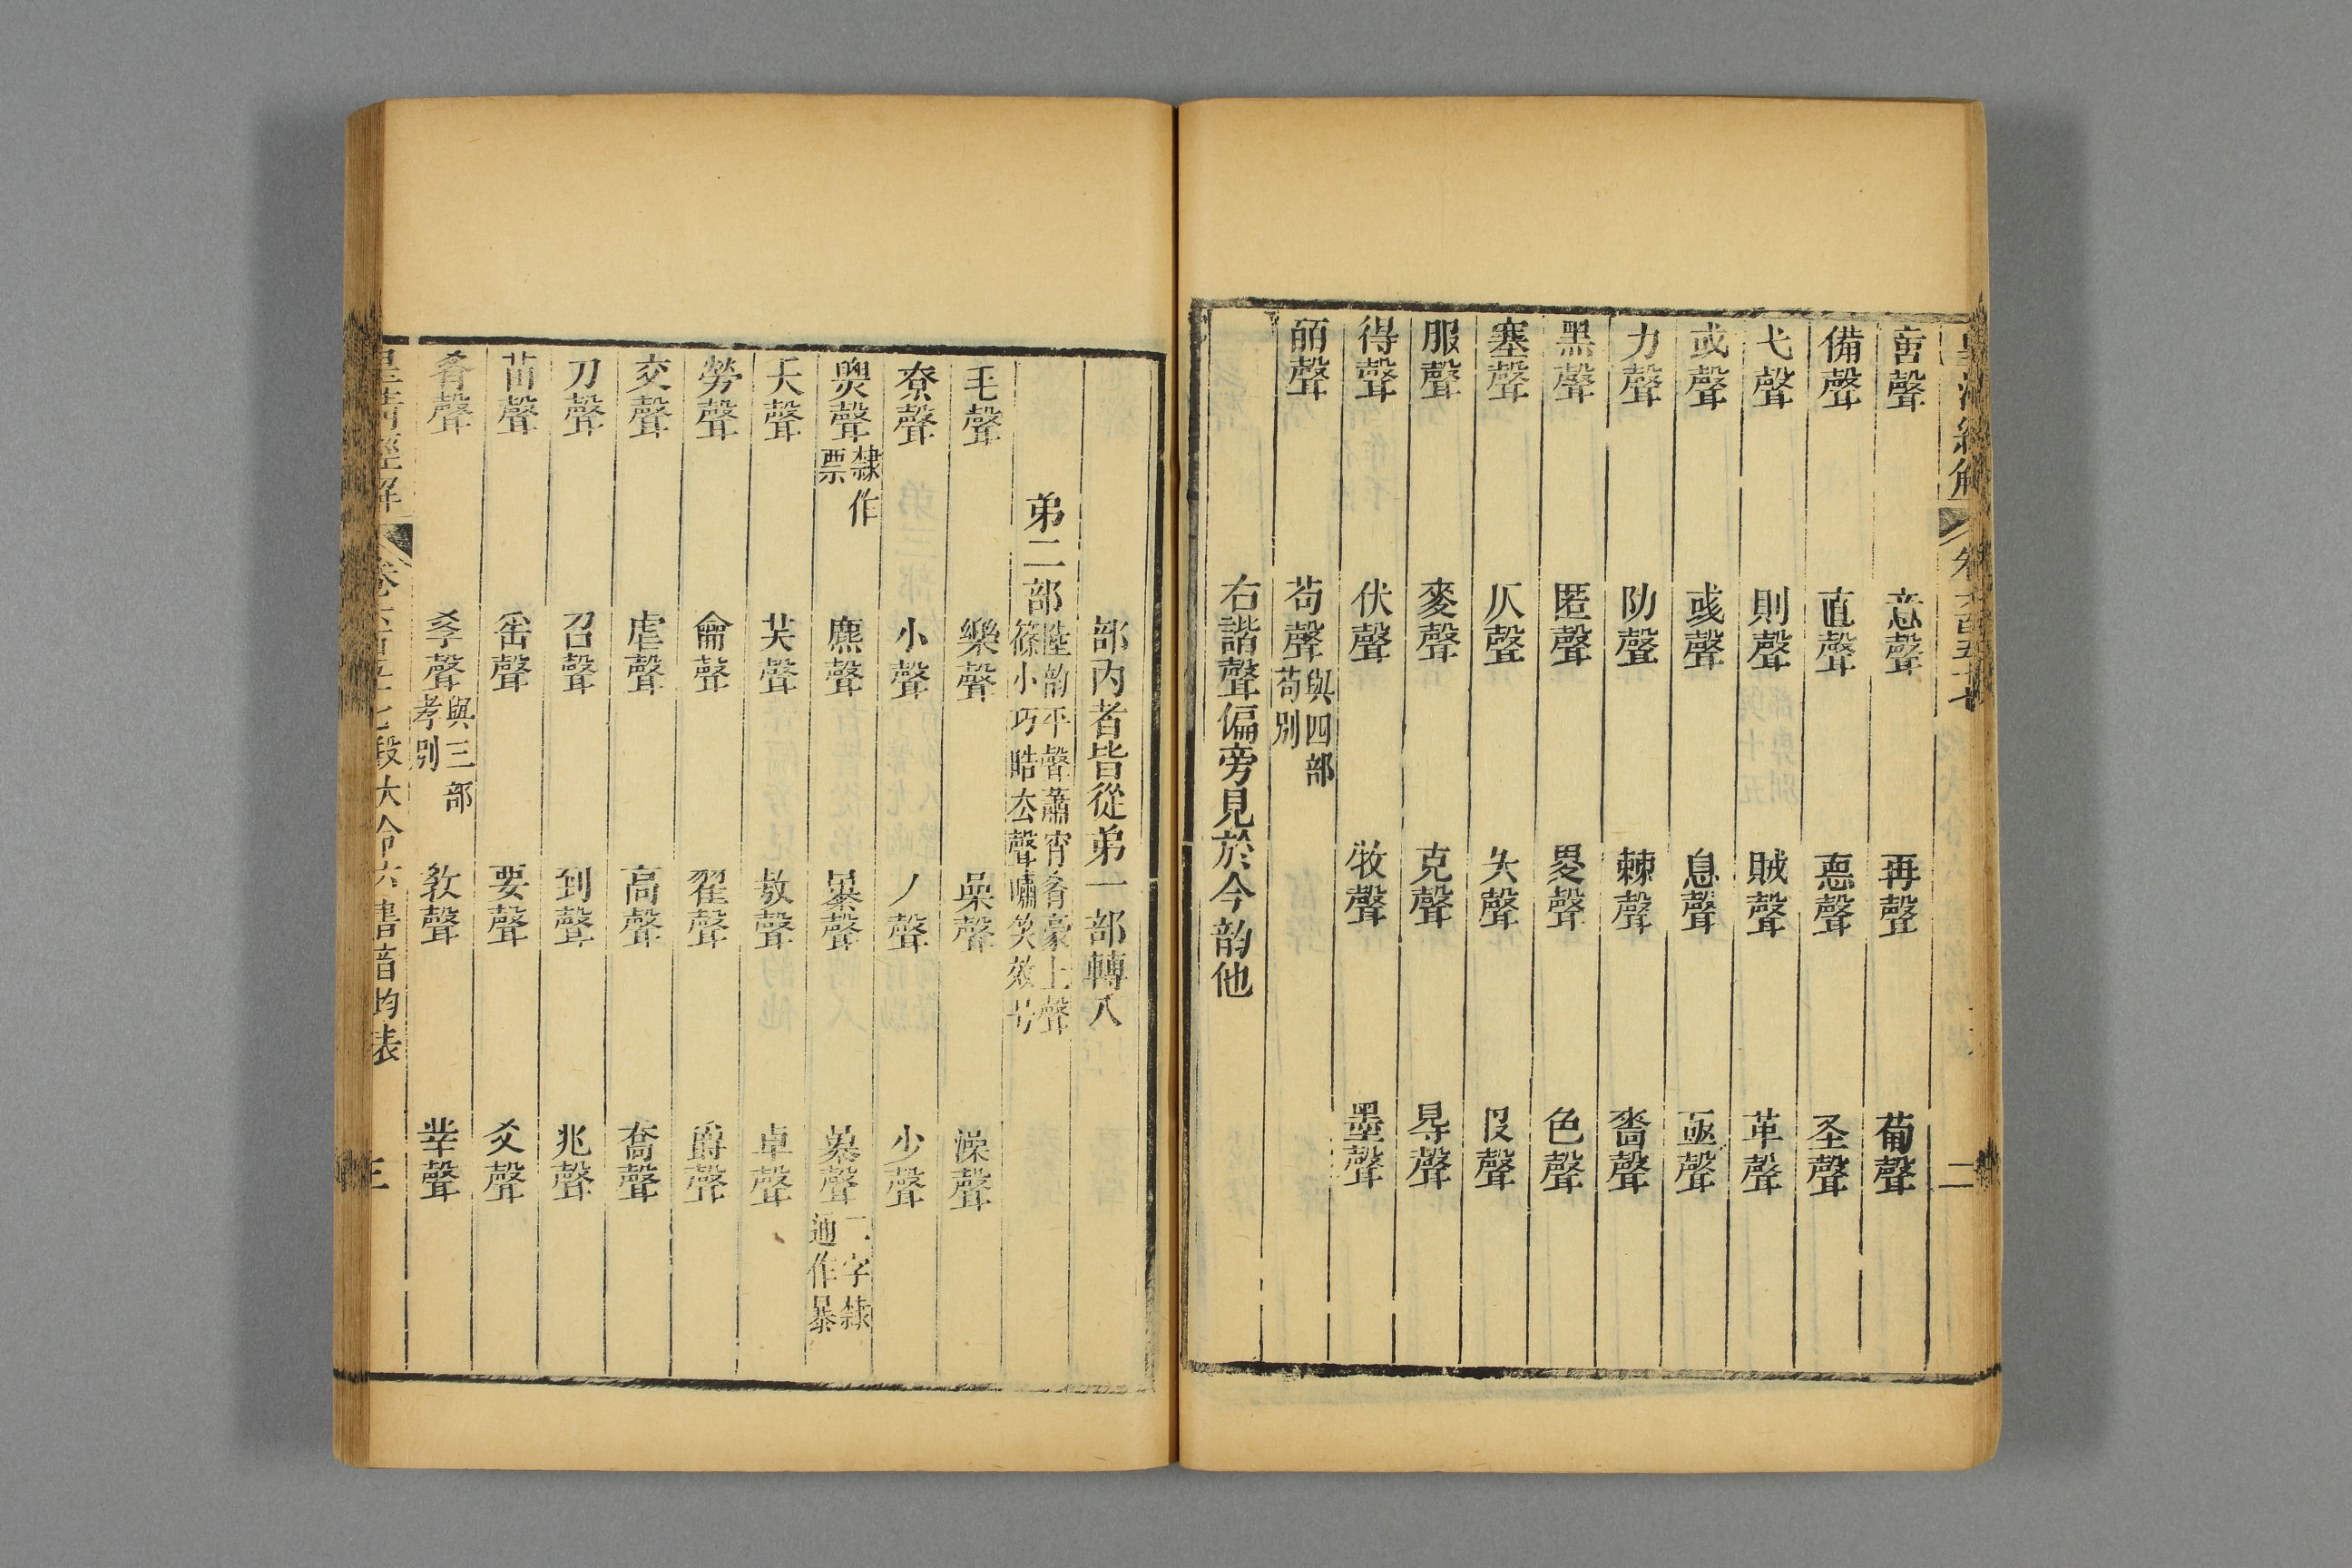 皇清經解 卷六百五十七 二
啻聲 意聲 再聲 葡聲
備聲 直聲 悳聲 圣聲
弋聲 則聲 賊聲 革聲
或聲 彧聲 息聲 亟聲
力聲 阞聲 棘聲 嗇聲
黑聲 匿聲 畟聲 色聲
塞聲 仄聲 矢聲 𠬝聲
服聲 麥聲 克聲 㝵聲
得聲 伏聲 牧聲 墨聲
皕聲 茍聲 與四部苟別
右諧聲偏旁見於今韵他
部內者皆從弟一部轉入
弟二部 陸韵平聲蕭宵肴豪上聲篠小巧晧去聲嘯笑效号
毛聲 樂聲 喿聲 澡聲
尞聲 小聲 丿聲 少聲
㶾聲 隸作票 麃聲 暴聲 㬥聲 二字隸通作暴
夭聲 芺聲 敖聲 卓聲
勞聲 龠聲 翟聲 爵聲
交聲 虐聲 高聲 喬聲
刀聲 召聲 到聲 兆聲
苗聲 䍃聲 要聲 爻聲
肴聲 孝聲 與三部考別 教聲 丵聲
皇清經解 卷六百五十七 段大令六書音均表 三